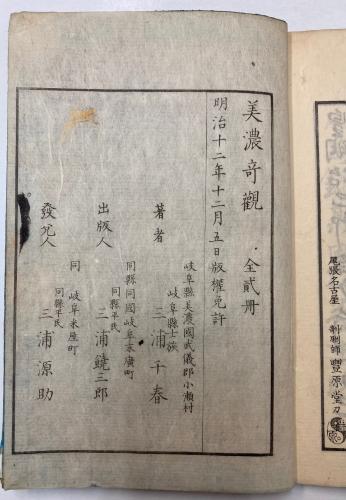 美濃奇觀 全貳册
明治十二年十二月五日版權免許
岐阜縣美濃國武儀郡小瀬村
岐阜縣士族
著者 三浦千春
同縣同國岐阜末廣町
同縣平民
出版人 三浦鐃三郎
同 岐阜米屋町
同縣平民
發兌人 三浦源助
尾張名古屋
剞劂師 豐原堂刀